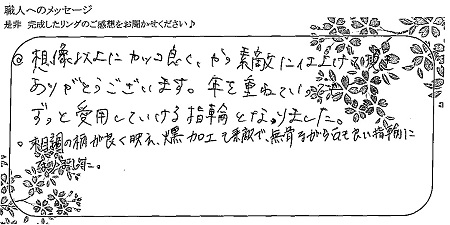 職人へのメッセージ
是非 完成したリングのご感想をお聞かせください♪
◎想像以上にカッコ良く、かつ素敵に仕上げて頂
ありがとうございます。年を重ねていっても
ずっと愛用していける指輪となりました。
。相調の柄が良く映え、燻加工も素敵で、無骨ながら古ても良い指輪に
なりました。